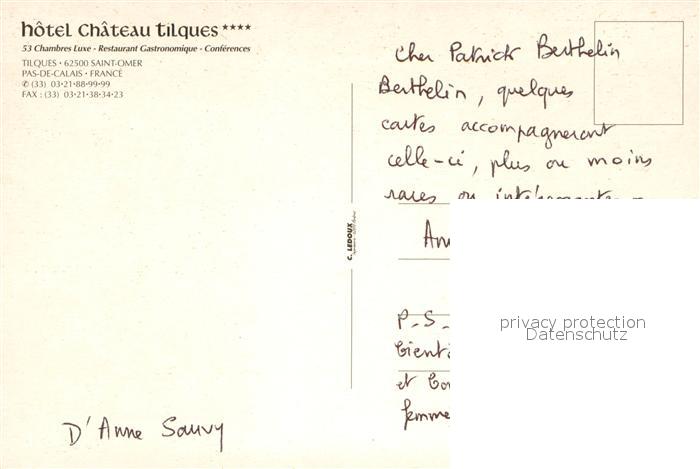 hôtel Château tilques ****
53 Chambres Luxe - Restaurant Gastronomique - Conférences
TILQUES • 62500 SAINT-OMER
PAS-DE-CALAIS • FRANCE
✆ (33) 03•21•88•99•99
FAX : (33) 03•21•38•34•23
C. LEDOUX
D'Anne Sauvy
Cher Patrick Berthelin
Berthelin, quelques
cartes accompagneront
celle-ci, plus ou moins
rares ou intéressantes -
P.S.
et
femme
privacy protection
Datenschutz